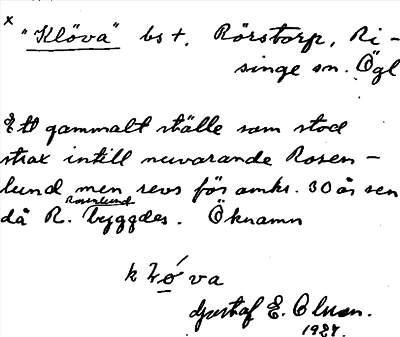 x "Klöva" bs †. Rörstorp, Ri-
singe sn. Ögl
Ett gammalt ställe som stod
strax intill nuvarande Rosen-
lund men revs för omkr. 30 år sen
Rosenlund
då R. byggdes. Öknamn
klóva
Gustaf E. Olsson.
1927.